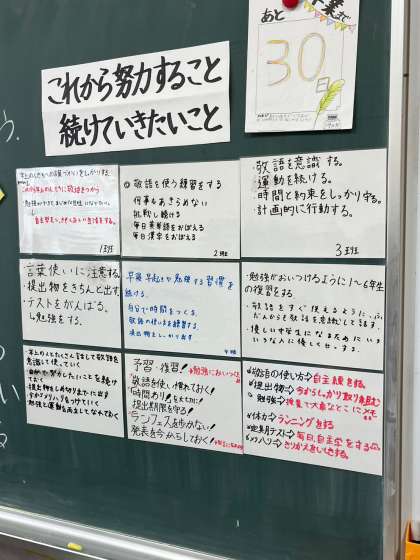 あと
業まで
30
これから努力すること
続けていきたいこと
1班
敬語を使う練習をする
何事もあきらめない
挑戦し続ける
毎日英単語をおぼえる
毎日漢字をおぼえる
2班
敬語を意識する。
・運動を続ける。
・時間と約束をしっかり守る。
・計画的に行動する。
3班
言葉使いに注意する。
・提出物をきちんと出す。
・テストをがんばる。
勉強をする。
早寝早起きや勉強する習慣を
続ける。
自分で時間をつくる。
敬語の使い方を練習する。
提出物をしっかり出す
・勉強がおいつけるように1〜6年生
の復習をする。
・敬語をすぐ使えるように、ふ
だんから敬語を意識して話す。
・優しい中学生になるためにいろ
いろな人に優しくする。
年上の人とたくさん話をして敬語を
意識して使っていく
提出物をしめ切りまでに出す
勉強と運動を両立してなれておく
予習・復習!
敬語を使い慣れておく!
時間わりを大切に!
提出期限を守る!
ランフェスを歩かない!
発表を今からしておく!
敬語の使い方⇒自主練をする。
提出物⇒今からしっかり取り組む
勉強⇒授業で大事なとこにメモ
体力⇒ランニングをする
定期テスト⇒毎日、自主学をする
メリハリ⇒きりかえをいしきする。